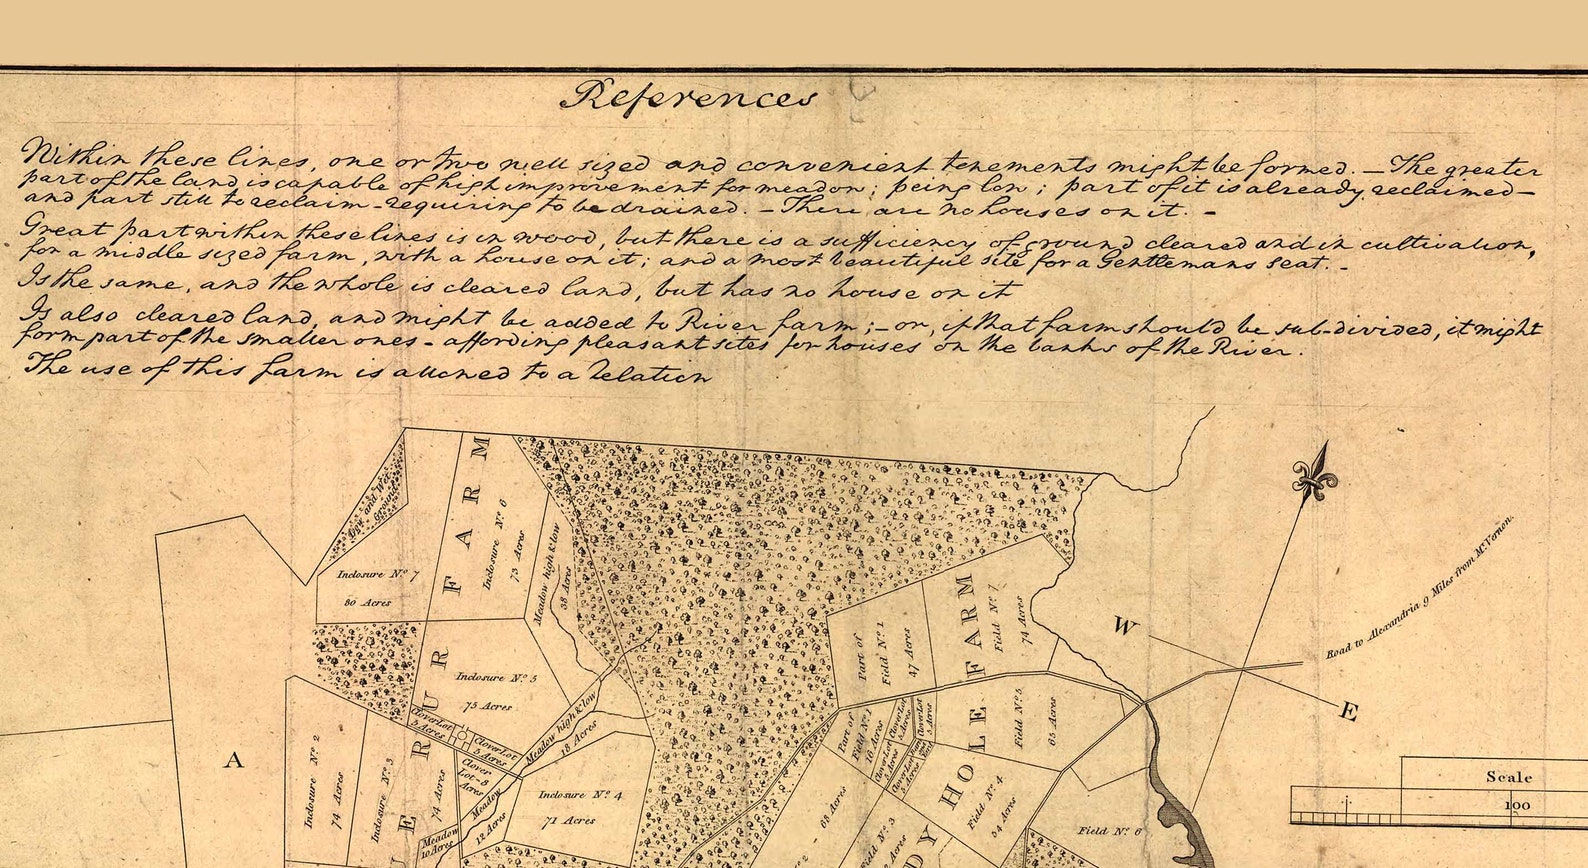 References
Within these lines, one or two well sized and convenient tenements might be formed. — The greater
part of the land is capable of high improvement for meadow; being low; part of it is already reclaimed —
and part still to reclaim - requiring to be drained. - There are no houses on it. -
Great part within these lines is in wood, but there is a sufficiency of ground cleared and in cultivation,
for a middle sized farm, with a house on it; and a most beautiful site for a Gentlemans seat. -
Is the same, and the whole is cleared land, but has no house on it
Is also cleared land, and might be added to River farm; - or, if that farm should be sub-divided, it might
form part of the smaller ones - affording pleasant sites for houses on the banks of the River.
The use of this farm is allowed to a Relation
FARM
Inclosure No. 6
73 Acres
Meadow high & low
38 Acres
Inclosure No. 7
80 Acres
Inclosure No. 5
75 Acres
Clover Lot
5 Acres
Clover Lot
5 Acres
Clover
Lot - 8
Acres
Meadow high & low
18 Acres
Inclosure No. 4
71 Acres
Meadow
12 Acres
Meadow
10 Acres
Inclosure No. 2
74 Acres
Inclosure No. 3
74 Acres
A
UR
ER
Part of
Field No. 1
47 Acres
FARM
Field No. 7
74 Acres
Part of
Field No. 1
18 Acres
Clover Lot
5 Acres
Clover Lot
5 Acres
Clover Lot
Clover Lot
HOLE
Field No. 5
65 Acres
Field No. 4
54 Acres
Field No. 6
68 Acres
Field No. 3
Acres
DY
W
E
Road to Alexandria 9 Miles from Mt. Vernon.
Scale
100